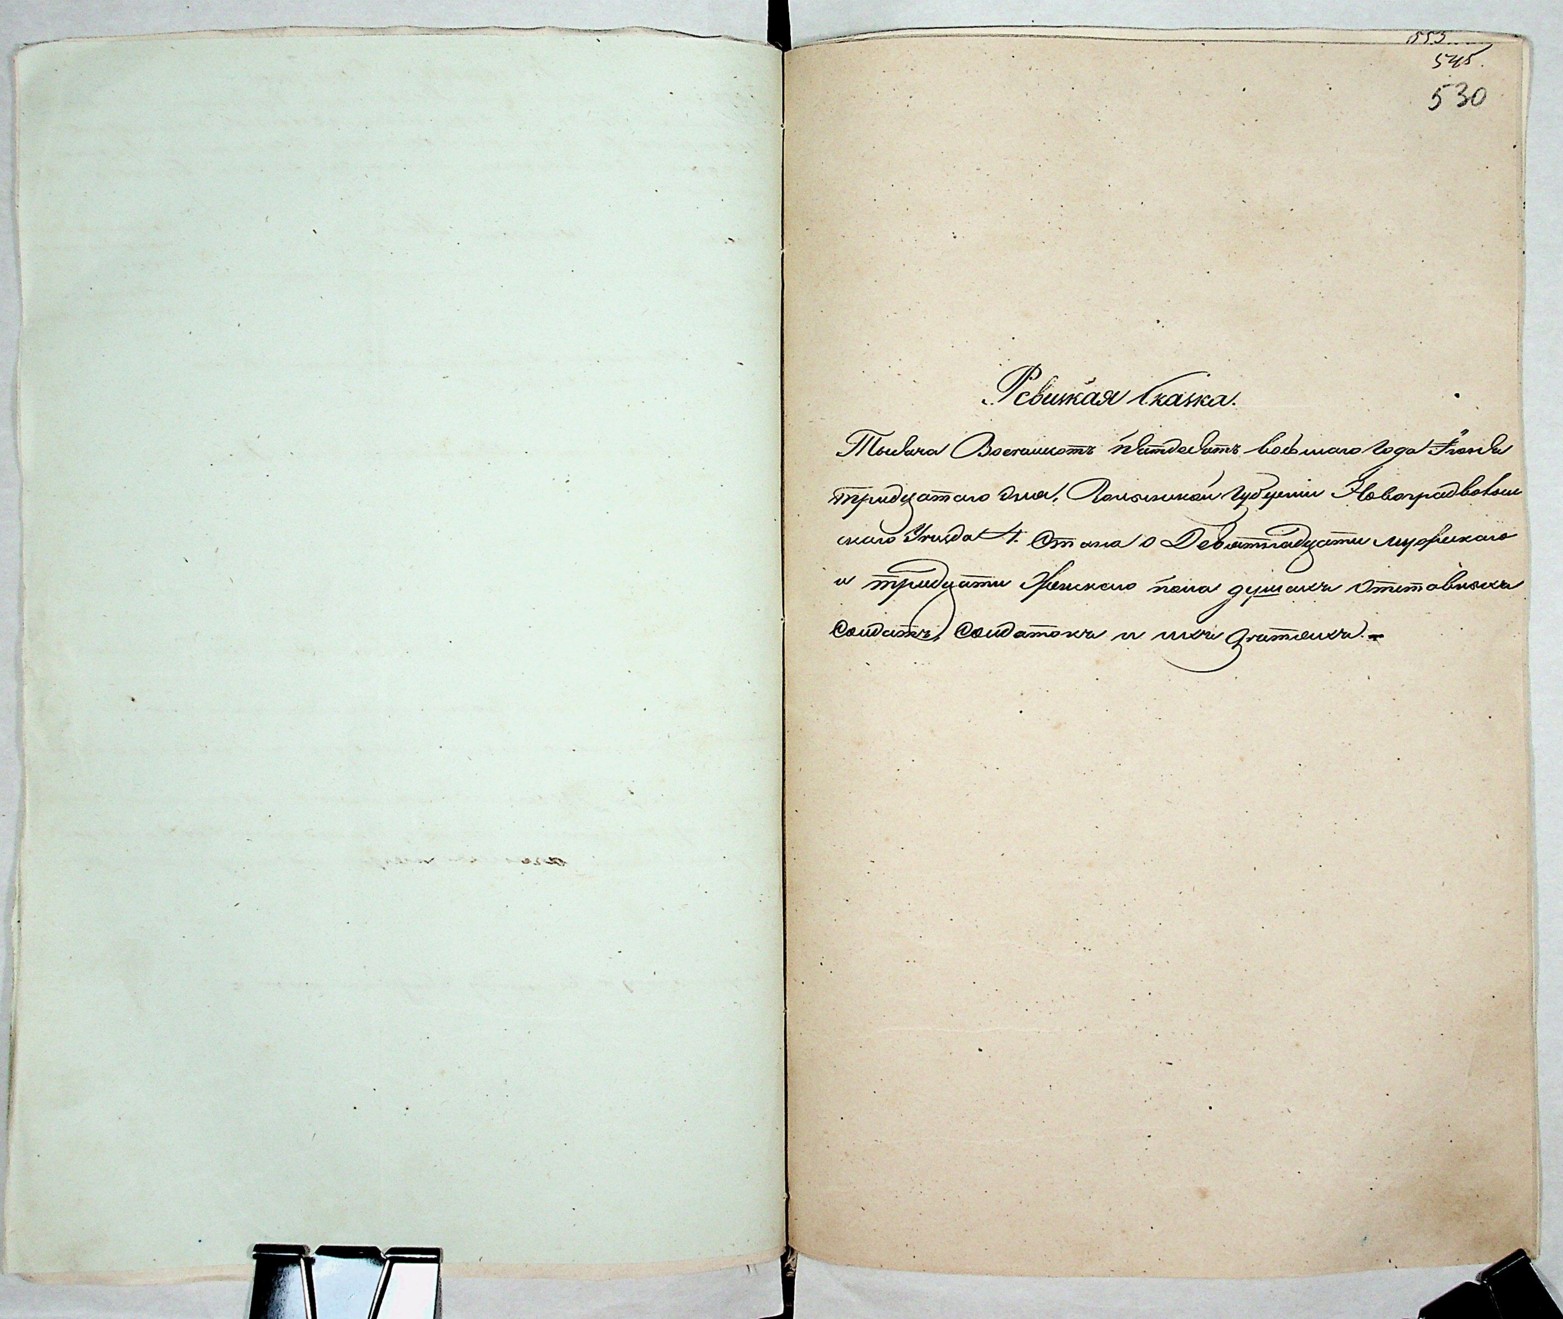 1553
545.
530
Ревижкая Сказка.
Тысяча Восемьсотъ пятдесятъ восьмаго года Іюня
тридцатаго дня. Волынской Губерніи Новоградволын
скаго Уезда 4. Стана о Девятнадцати мужескаго
и тридцати женскаго пола душахъ отставныхъ
Солдатъ, Солдатокъ и ихъ детяхъ.